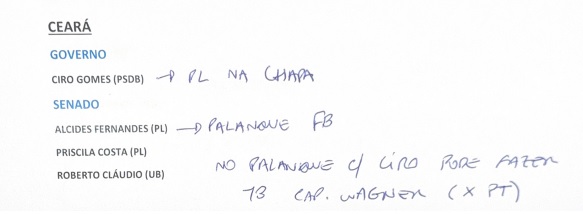 CEARÁ
GOVERNO
CIRO GOMES (PSDB) → PL NA CHAPA
SENADO
ALCIDES FERNANDES (PL) → PALANQUE FB
PRISCILA COSTA (PL)
ROBERTO CLÁUDIO (UB)
NO PALANQUE C/ CIRO PODE FAZER
TB CAP. WAGNER (X PT)